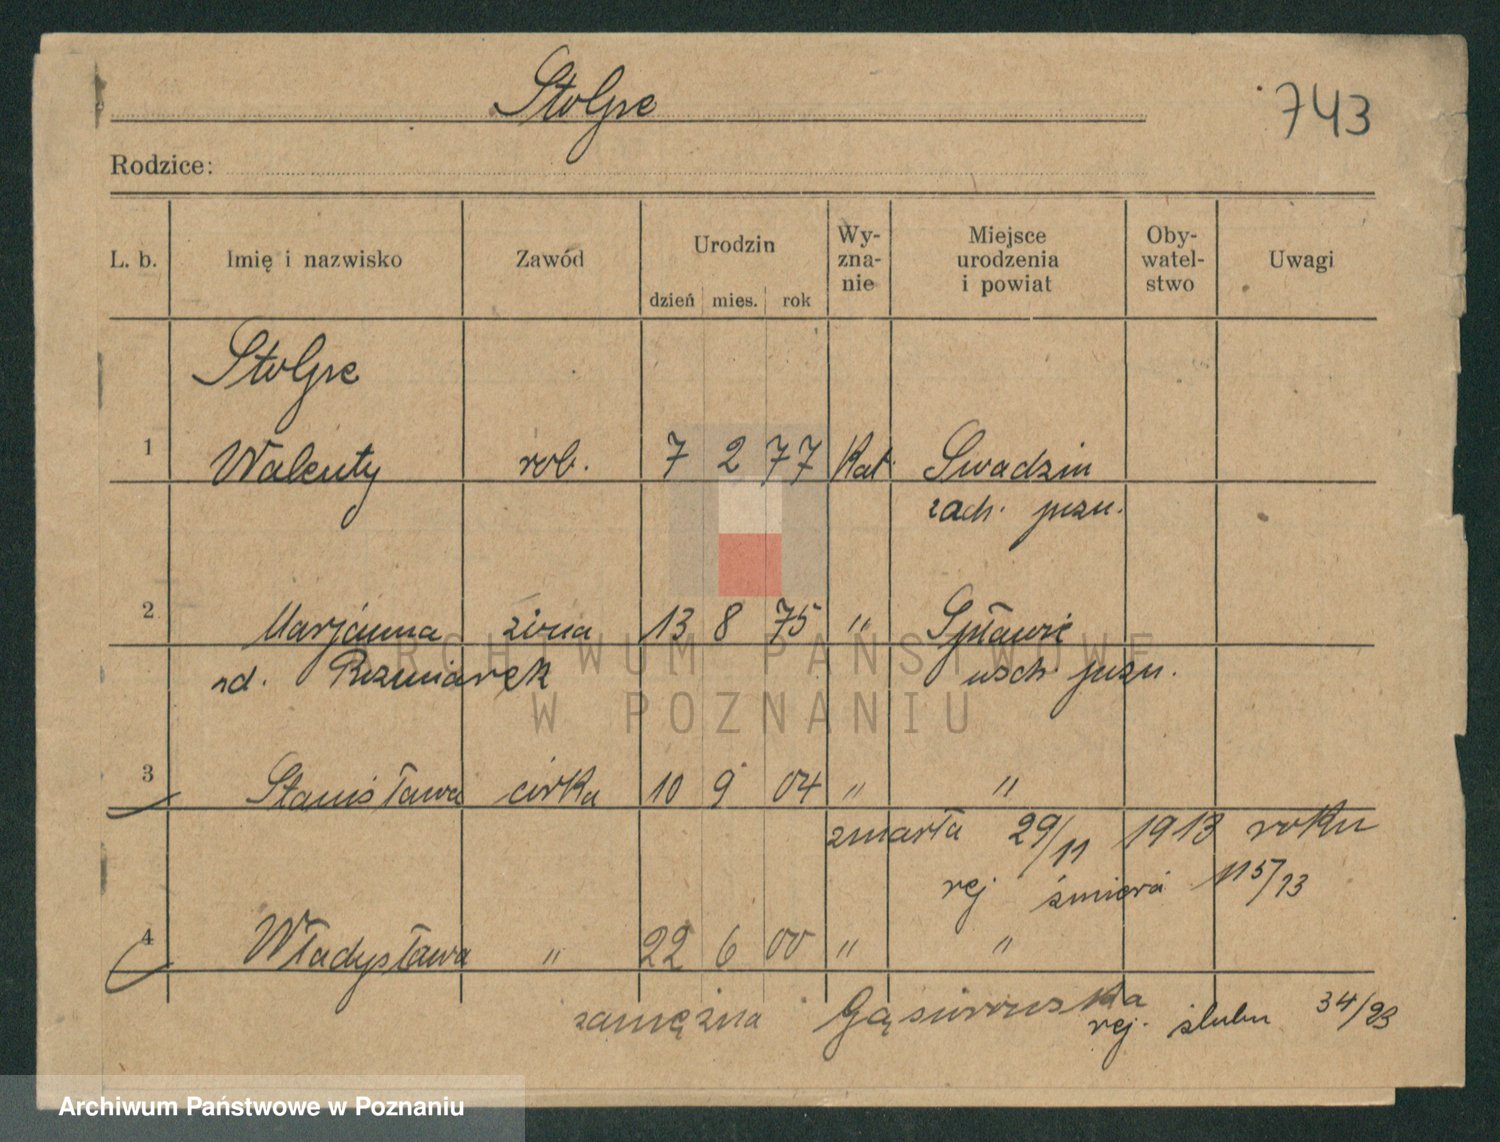 Stolpe
743
Rodzice:
L. b. Imię i nazwisko Zawód Urodzin dzień mies. rok Wyznanie Miejsce urodzenia i powiat Obywatelstwo Uwagi
Stolpe
1 Walenty rob. 7 2 77 Kat. Swadzin
zach. pozn.
2 Marjanna żona 13 8 75 " Spławie
rd. wsch. pozn.
3 Stanisława córka 10 9 04 " "
zmarła 29/11 1913 roku
rej śmierci 115/13
4 Władysława " 22 6 00 " "
zamężna Gąsiorowska
rej. ślubu 34/23
ARCHIWUM PAŃSTWOWE
W POZNANIU
Archiwum Państwowe w Poznaniu